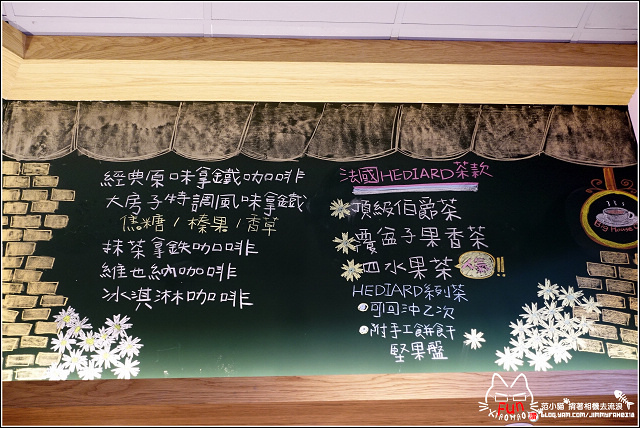 經典原味拿鐵咖啡
大房子特調風味拿鐵
焦糖/榛果/香草
抹茶拿鉄咖啡
維也納咖啡
冰淇淋咖啡
法國HEDIARD茶款
頂級伯爵茶
覆盆子果香茶
四水果茶
HEDIARD系列茶
•可回沖乙次
•附手工餅餅干
堅果盤
Big House
范小貓 揹著相機去流浪
FUN
BLOG.YAM.COM/JIMMYFAN8318